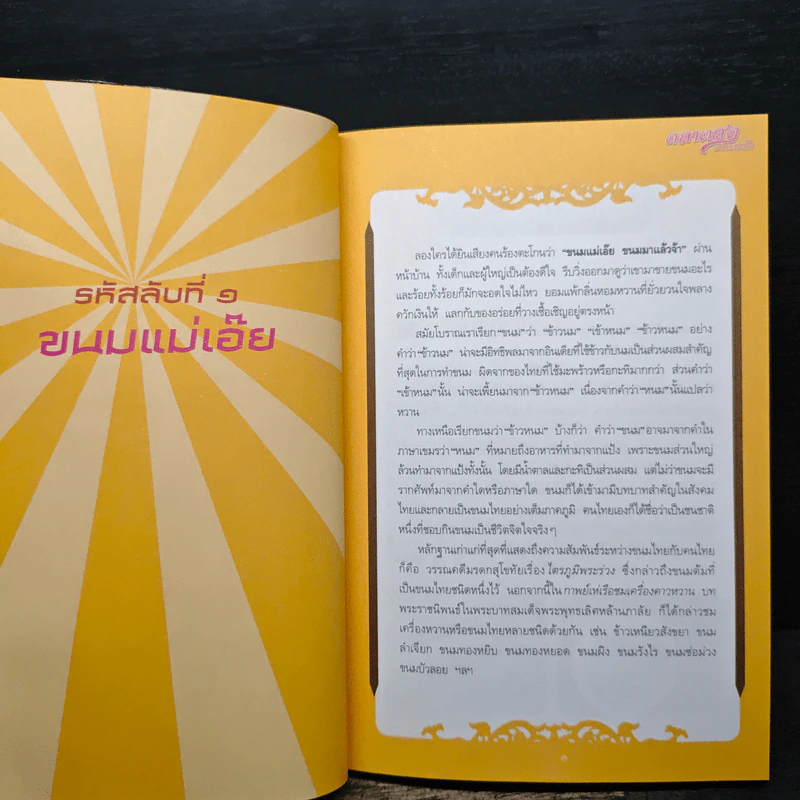 รหัสลับที่ ๑
ขนมแม่เอ๊ย
ลองใครได้ยินเสียงคนร้องตะโกนว่า “ขนมแม่เอ๊ย ขนมมาแล้วจ้า” ผ่าน
หน้าบ้าน ทั้งเด็กและผู้ใหญ่เป็นต้องดีใจ รีบวิ่งออกมาดูว่าเขามาขายขนมอะไร
และร้อยทั้งร้อยก็มักจะอดใจไม่ไหว ยอมแพ้กลิ่นหอมหวานที่ยั่วยวนใจพลาง
ควักเงินให้ แลกกับของอร่อยที่วางเชื้อเชิญอยู่ตรงหน้า
สมัยโบราณเราเรียก“ขนม”ว่า “ข้าวนม” “เข้าหนม” “ข้าวหนม” อย่าง
คำว่า“ข้าวนม” น่าจะมีอิทธิพลมาจากอินเดียที่ใช้ข้าวกับนมเป็นส่วนผสมสำคัญ
ที่สุดในการทำขนม ผิดจากของไทยที่ใช้มะพร้าวหรือกะทิมากกว่า ส่วนคำว่า
“เข้าหนม”นั้น น่าจะเพี้ยนมาจาก“ข้าวหนม” เนื่องจากคำว่า“หนม”นั้นแปลว่า
หวาน
ทางเหนือเรียกขนมว่า“ข้าวหนม” บ้างก็ว่า คำว่า“ขนม”อาจมาจากคำใน
ภาษาเขมรว่า“หนม” ที่หมายถึงอาหารที่ทำมาจากแป้ง เพราะขนมส่วนใหญ่
ล้วนทำมาจากแป้งทั้งนั้น โดยมีน้ำตาลและกะทิเป็นส่วนผสม แต่ไม่ว่าขนมจะมี
รากศัพท์มาจากคำใดหรือภาษาใด ขนมก็ได้เข้ามามีบทบาทสำคัญในสังคม
ไทยและกลายเป็นขนมไทยอย่างเต็มภาคภูมิ คนไทยเองก็ได้ชื่อว่าเป็นชนชาติ
หนึ่งที่ชอบกินขนมเป็นชีวิตจิตใจจริงๆ
หลักฐานเก่าแก่ที่สุดที่แสดงถึงความสัมพันธ์ระหว่างขนมไทยกับคนไทย
ก็คือ วรรณคดีมรดกสุโขทัยเรื่องไตรภูมิพระร่วง ซึ่งกล่าวถึงขนมต้มที่
เป็นขนมไทยชนิดหนึ่งไว้ นอกจากนี้ในกาพย์เห่เรือชมเครื่องคาวหวาน บท
พระราชนิพนธ์ในพระบาทสมเด็จพระพุทธเลิศหล้านภาลัย ก็ได้กล่าวชม
เครื่องหวานหรือขนมไทยหลายชนิดด้วยกัน เช่น ข้าวเหนียวสังขยา ขนม
ลำเจียก ขนมทองหยิบ ขนมทองหยอด ขนมผิง ขนมรังไร ขนมช่อม่วง
ขนมบัวลอย ฯลฯ